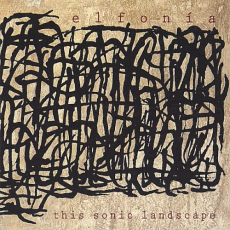 elfonía
this sonic landscape